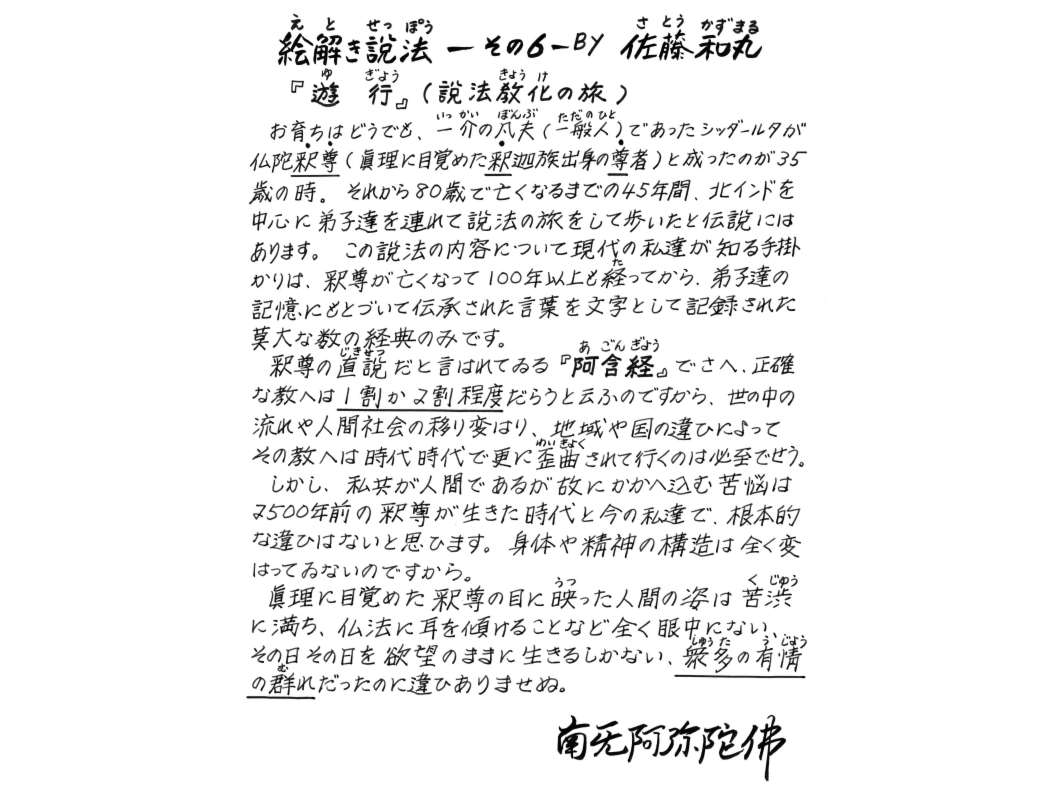 絵解き説法 ―その6― BY 佐藤和丸
『遊 行』(説法教化の旅)
お育ちはどうでも、一介の凡夫(一般人)であったシッダールタが
仏陀釈尊(眞理に目覚めた釈迦族出身の尊者)と成ったのが35
歳の時。それから80歳で亡くなるまでの45年間、北インドを
中心に弟子達を連れて説法の旅をして歩いたと伝説には
あります。この説法の内容について現代の私達が知る手掛
かりは、釈尊が亡くなって100年以上も経ってから、弟子達の
記憶にもとづいて伝承された言葉を文字として記録された
莫大な数の経典のみです。
釈尊の直説だと言はれてゐる『阿含経』でさへ、正確
な教へは1割か2割程度だらうと云ふのですから、世の中の
流れや人間社会の移り変はり、地域や国の違ひによって
その教へは時代時代で更に歪曲されて行くのは必至でせう。
しかし、私共が人間であるが故にかかへ込む苦悩は
2500年前の釈尊が生きた時代と今の私達で、根本的
な違ひはないと思ひます。身体や精神の構造は全く変
はってゐないのですから。
眞理に目覚めた釈尊の目に映った人間の姿は苦渋
に満ち、仏法に耳を傾けることなど全く眼中にない、
その日その日を欲望のままに生きるしかない、衆多の有情
の群れだったのに違ひありませぬ。
南无阿弥陀佛